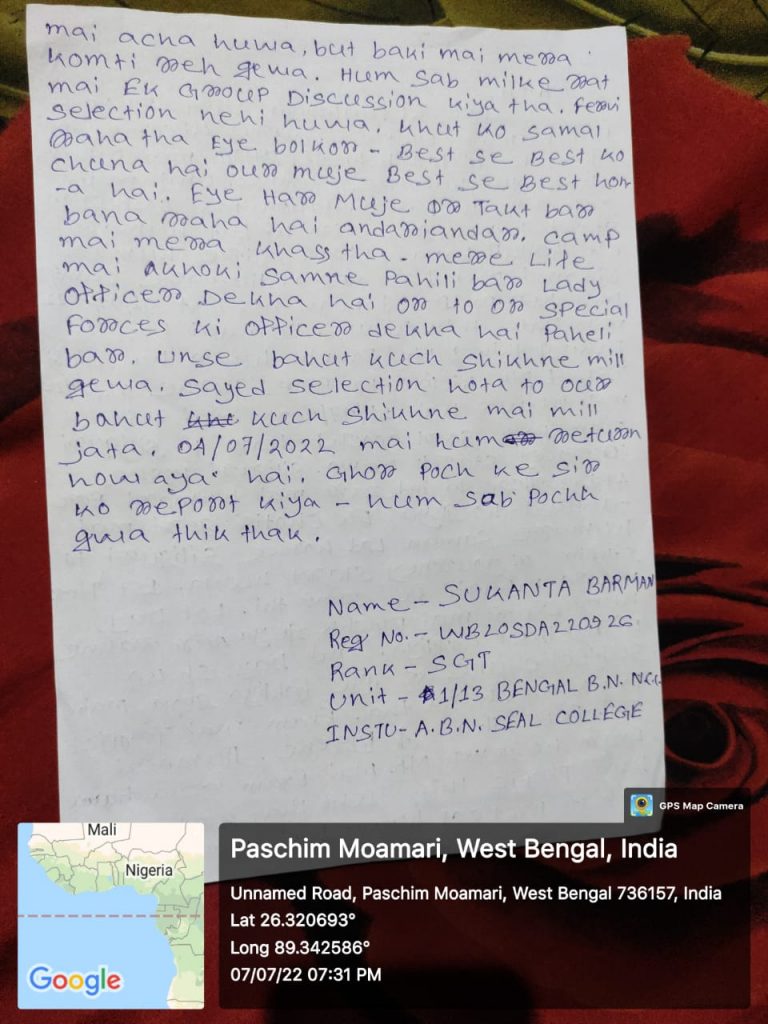 mai acha huwa, but baki mai mera
komti reh gewa. Hum sab milke rat
mai Ek Group Discussion kiya tha. Ferri
selection nehi huwa. khut ko samal
raha tha Eye bolkor - Best se Best ko
chuna hai our muje Best se Best hon
-a hai. Eye Har Muje or Takt bar
bana raha hai andariandar. camp
mai mera khass tha. mere Life
mai Aukhoki samne Pahili bar Lady
officer Dekha hai or to or special
forces ki officer dekha hai Paheli
bar. unse bahut kuch shikhne mill
gewa. sayed selection hota to our
bahut kuch shikhne mai mill
jata. 04/07/2022 mai hum return
how aya hai. Ghor Poch ke sir
ko report kiya - hum sab Pochh
gwa thik thak.
Name - SUKANTA BARMAN
Reg No. - WB20SDA220926
Rank - SGT
Unit - 1/13 BENGAL B.N. NCC
INSTU- A.B.N. SEAL COLLEGE
GPS Map Camera
Mali
Nigeria
Google
Paschim Moamari, West Bengal, India
Unnamed Road, Paschim Moamari, West Bengal 736157, India
Lat 26.320693°
Long 89.342586°
07/07/22 07:31 PM